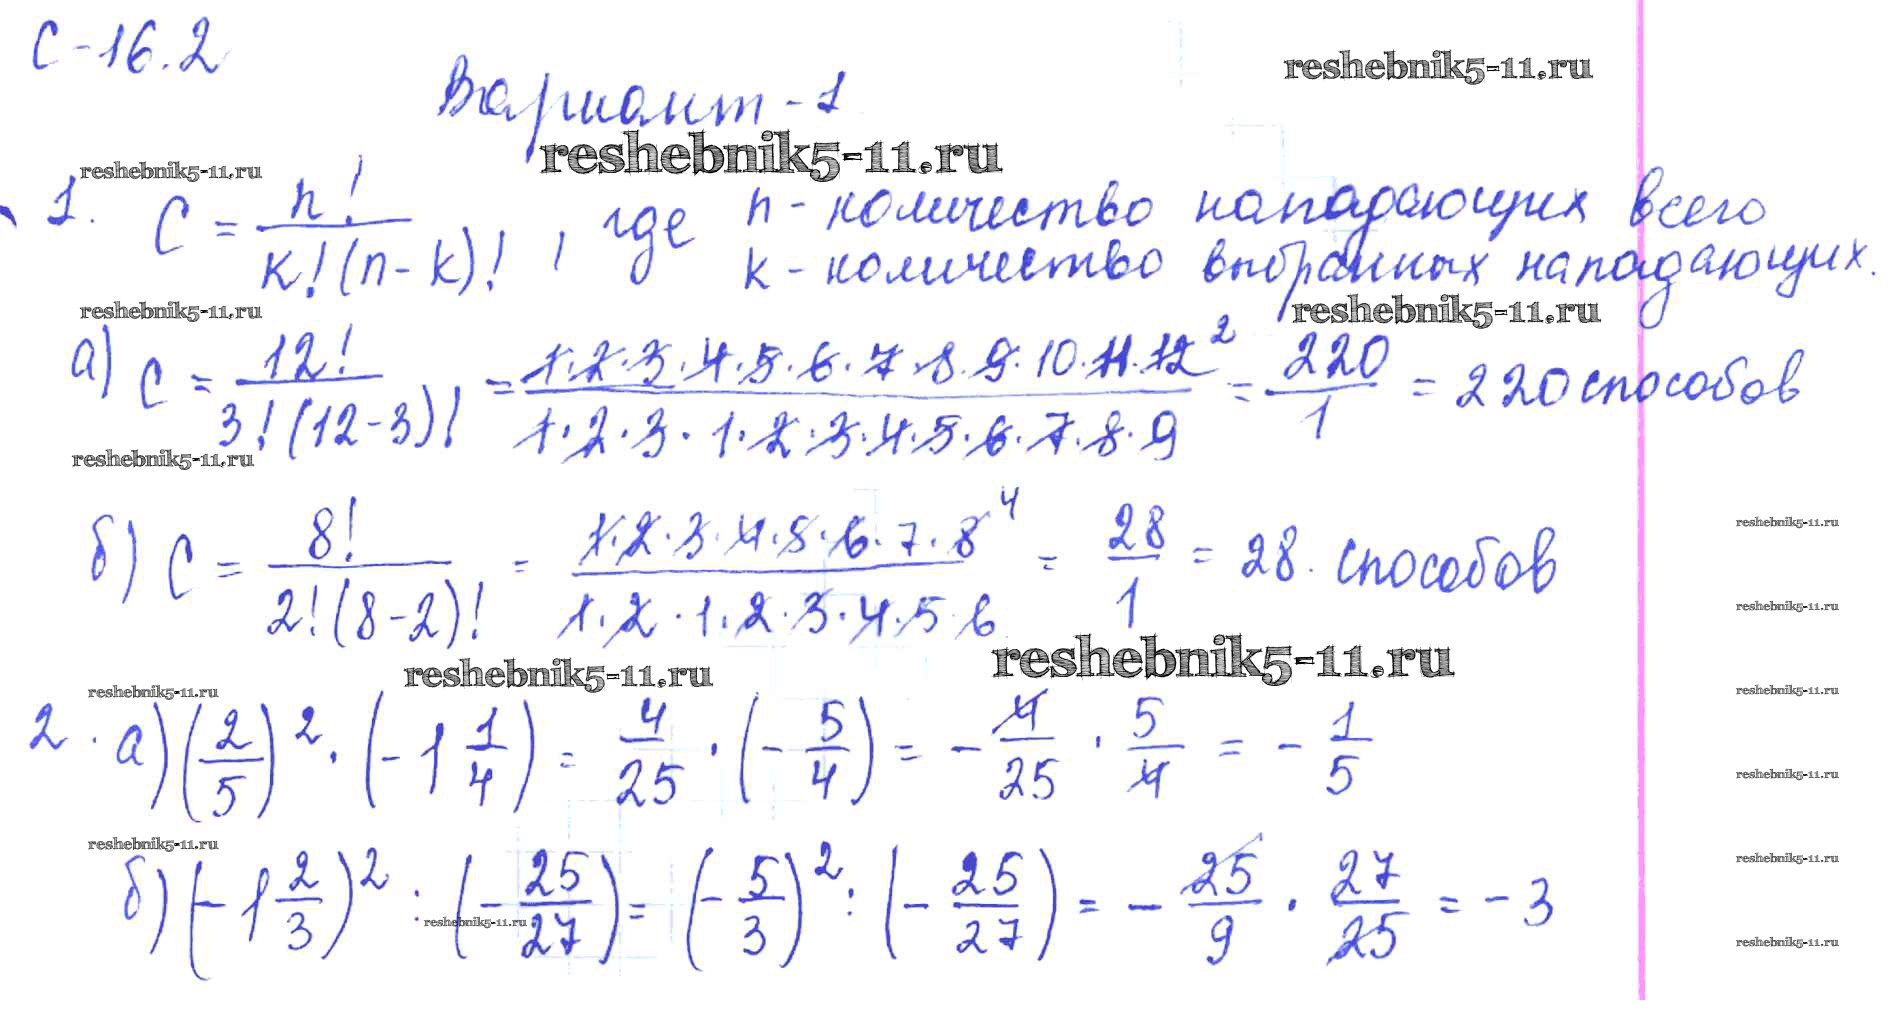 С-16.2
reshebnik5-11.ru
Вариант-1
reshebnik5-11.ru
reshebnik5-11.ru
1. C = n! / k!(n-k)! , где n - количество нападающих всего
k - количество выбранных нападающих.
reshebnik5-11.ru
reshebnik5-11.ru
а) C = 12! / 3!(12-3)! = 1·2·3·4·5·6·7·8·9·10·11·12 ² / 1·2·3·1·2·3·4·5·6·7·8·9 = 220 / 1 = 220 способов
reshebnik5-11.ru
б) C = 8! / 2!(8-2)! = 1·2·3·4·5·6·7·8 ⁴ / 1·2·1·2·3·4·5·6 = 28 / 1 = 28. способов
reshebnik5-11.ru
reshebnik5-11.ru
reshebnik5-11.ru
reshebnik5-11.ru
reshebnik5-11.ru
reshebnik5-11.ru
2. а) (2/5)² · (-1 1/4) = 4/25 · (-5/4) = -4/25 · 5/4 = -1/5
reshebnik5-11.ru
reshebnik5-11.ru
reshebnik5-11.ru
б) (-1 2/3)² : (-25/27) = (-5/3)² : (-25/27) = -25/9 · 27/25 = -3
reshebnik5-11.ru
reshebnik5-11.ru